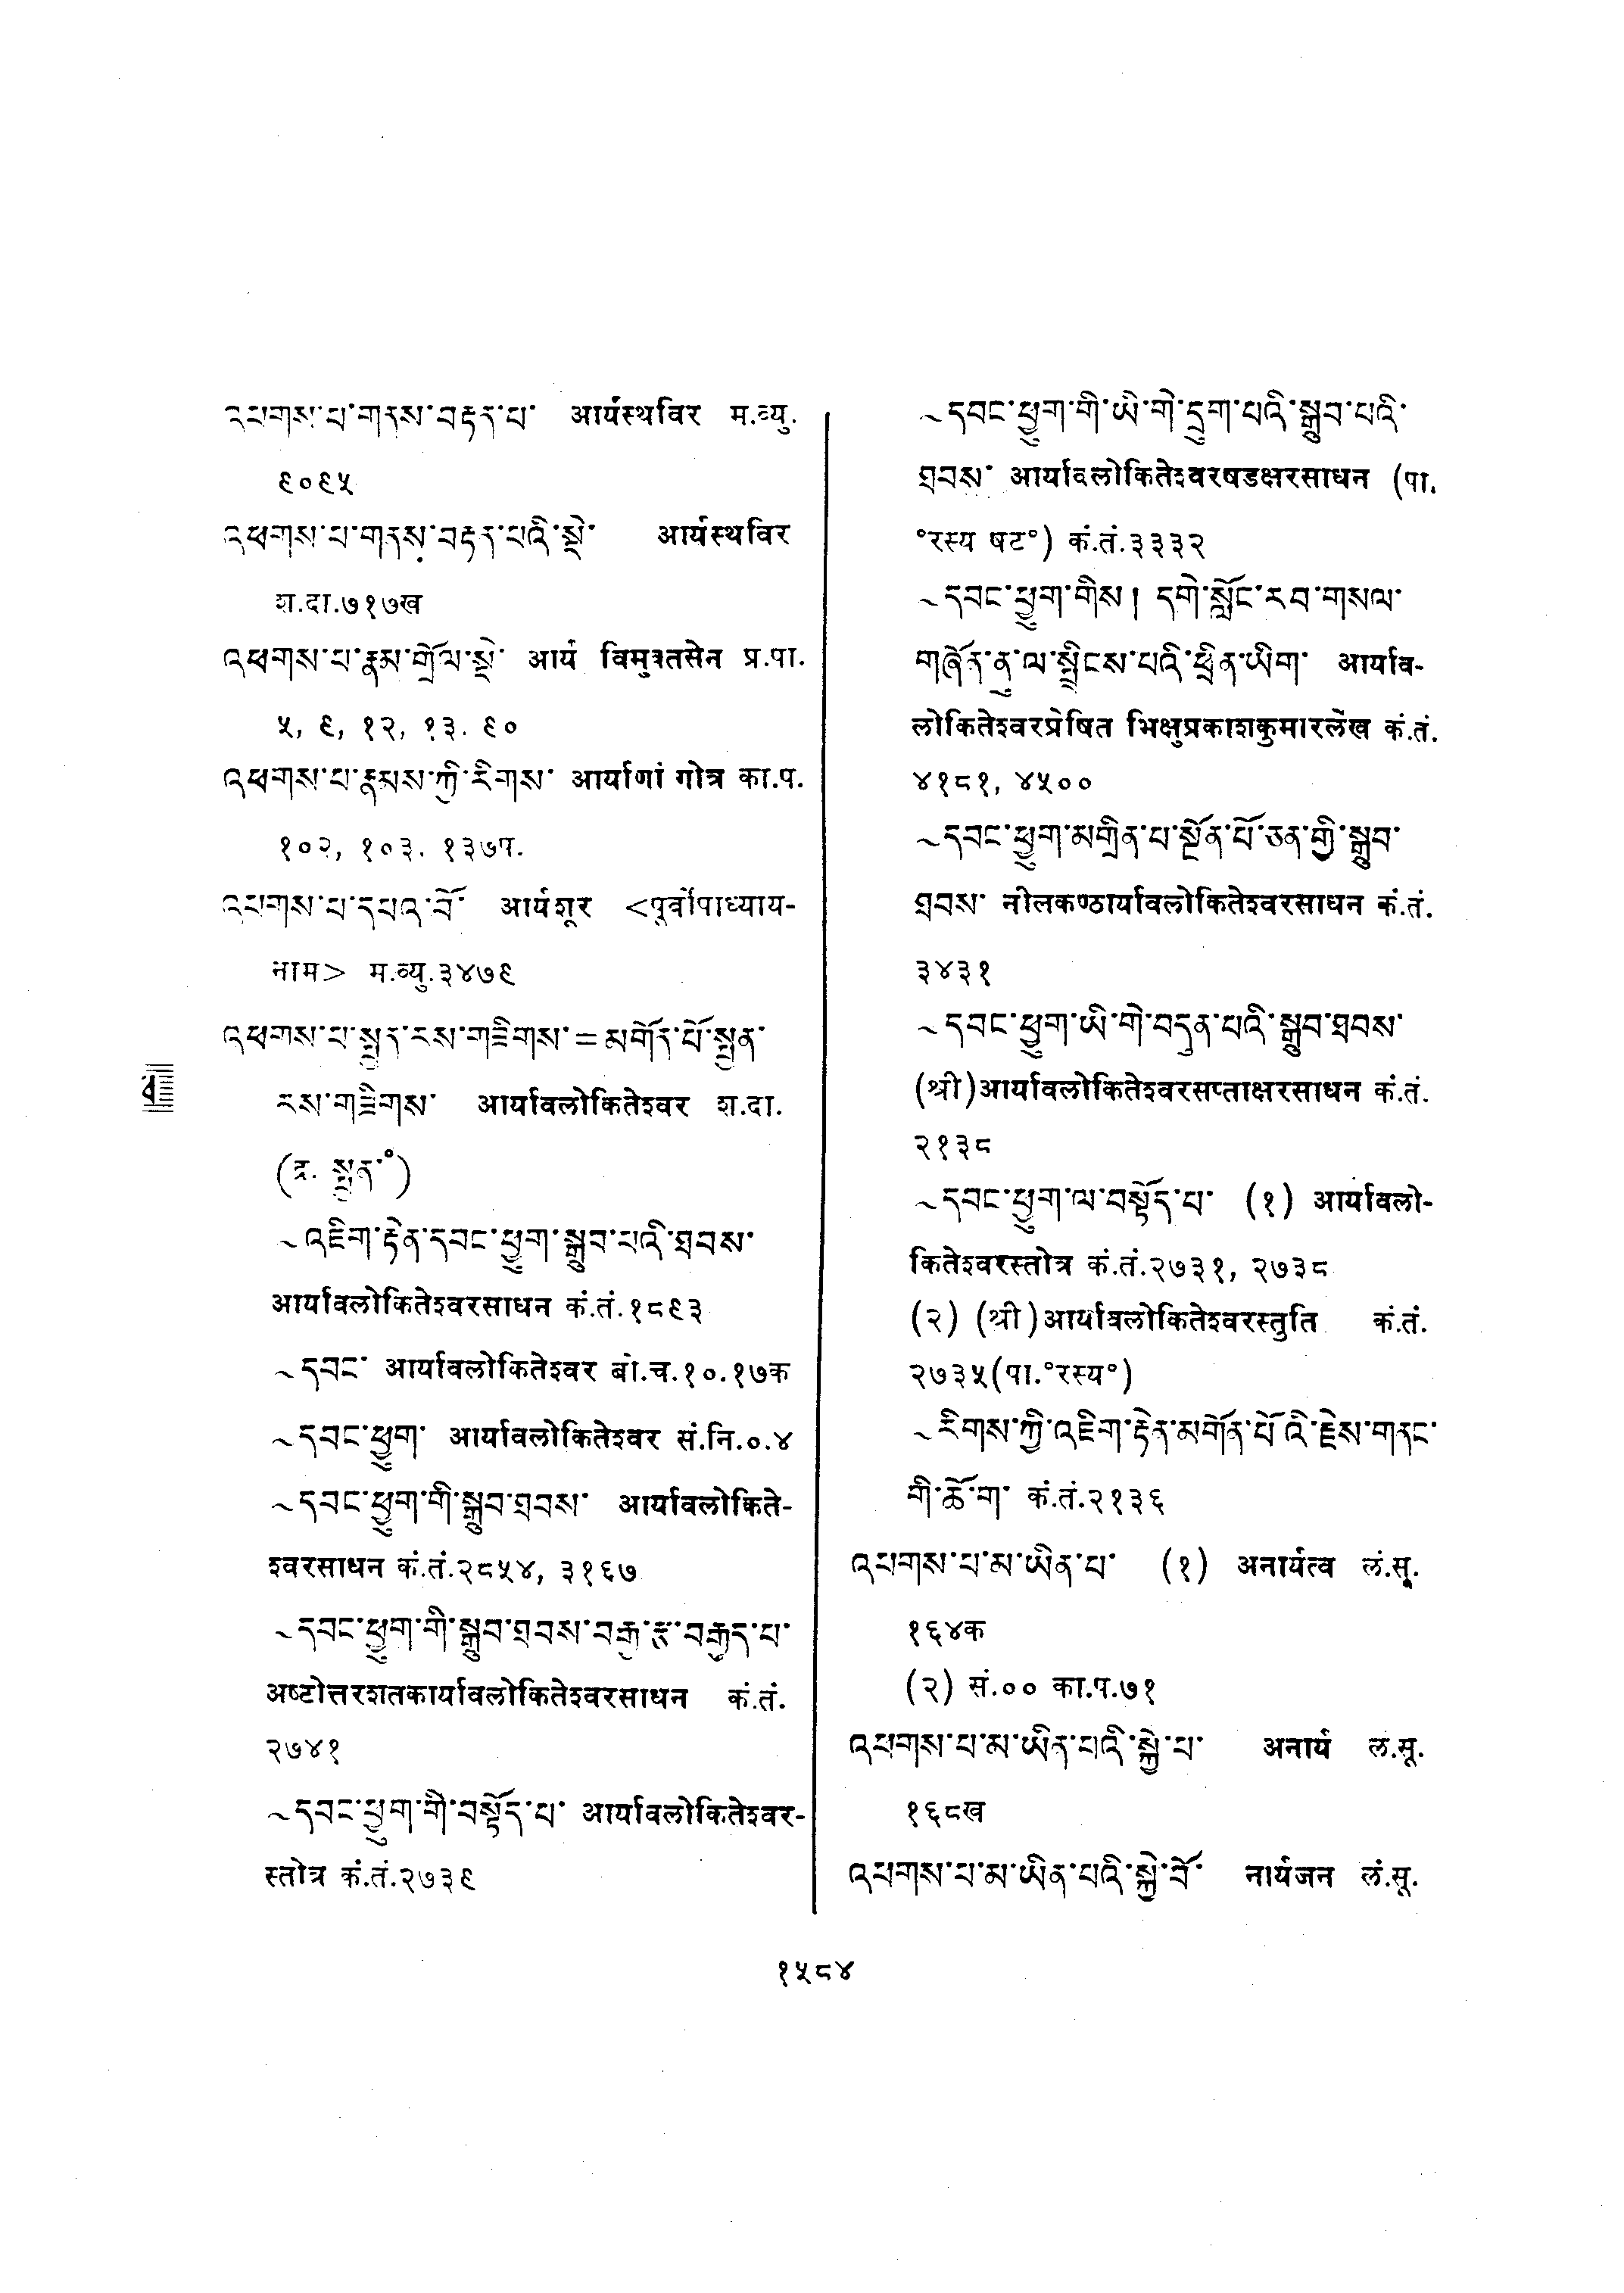 འཕགས་པ་གནས་བརྟན་པ་ आर्यस्थविर म.व्यु.
९०९५
འཕགས་པ་གནས་བརྟན་པའི་སྡེ་ आर्यस्थविर
श.दा.७१७ख
འཕགས་པ་རྣམ་གྲོལ་སྡེ་ आर्य विमुक्तसेन प्र.पा.
५, ९, १२, १३. ९०
འཕགས་པ་རྣམས་ཀྱི་རིགས་ आर्याणां गोत्र का.प.
१०२, १०३. १३७प.
འཕགས་པ་དཔའ་བོ་ आर्यशूर <पूर्वोपाध्याय-
नाम> म.व्यु.३४७९
འཕགས་པ་སྤྱན་རས་གཟིགས་=མགོན་པོ་སྤྱན་
རས་གཟིགས་ आर्यावलोकितेश्वर श.दा.
(द्र. སྤྱན་°)
~འཇིག་རྟེན་དབང་ཕྱུག་སྒྲུབ་པའི་ཐབས་
आर्यावलोकितेश्वरसाधन कं.तं.१८९३
~དབང་ आर्यावलोकितेश्वर बो.च.१०.१७क
~དབང་ཕྱུག་ आर्यावलोकितेश्वर सं.नि.०.४
~དབང་ཕྱུག་གི་སྒྲུབ་ཐབས་ आर्यावलोकिते-
श्वरसाधन कं.तं.२८५४, ३१६७
~དབང་ཕྱུག་གི་སྒྲུབ་ཐབས་བརྒྱ་རྩ་བརྒྱད་པ་
अष्टोत्तरशतकार्यावलोकितेश्वरसाधन कं.तं.
२७४१
~དབང་ཕྱུག་གི་བསྟོད་པ་ आर्यावलोकितेश्वर-
स्तोत्र कं.तं.२७३९
~དབང་ཕྱུག་གི་ཡི་གེ་དྲུག་པའི་སྒྲུབ་པའི་
ཐབས་ आर्यावलोकितेश्वरषडक्षरसाधन (पा.
°रस्य षट°) कं.तं.३३३२
~དབང་ཕྱུག་གིས། དགེ་སློང་རབ་གསལ་
གཞོན་ནུ་ལ་སྤྲིངས་པའི་ཕྲིན་ཡིག་ आर्याव-
लोकितेश्वरप्रेषित भिक्षुप्रकाशकुमारलेख कं.तं.
४१८१, ४५००
~དབང་ཕྱུག་མགྲིན་པ་སྔོན་པོ་ཅན་གྱི་སྒྲུབ་
ཐབས་ नीलकण्ठार्यावलोकितेश्वरसाधन कं.तं.
३४३१
~དབང་ཕྱུག་ཡི་གེ་བདུན་པའི་སྒྲུབ་ཐབས་
(श्री)आर्यावलोकितेश्वरसप्ताक्षरसाधन कं.तं.
२१३८
~དབང་ཕྱུག་ལ་བསྟོད་པ་ (१) आर्यावलो-
कितेश्वरस्तोत्र कं.तं.२७३१, २७३८
(२) (श्री)आर्यावलोकितेश्वरस्तुति कं.तं.
२७३५(पा.°रस्य°)
~རིགས་ཀྱི་འཇིག་རྟེན་མགོན་པོའི་རྗེས་གནང་
གི་ཆོ་ག་ कं.तं.२१३६
འཕགས་པ་མ་ཡིན་པ་ (१) अनार्यत्व लं.सू.
१६४क
(२) सं.०० का.प.७१
འཕགས་པ་མ་ཡིན་པའི་སྐྱེ་པ་ अनार्य लं.सू.
१६८ख
འཕགས་པ་མ་ཡིན་པའི་སྐྱེ་བོ་ नार्यजन लं.सू.
१५८४